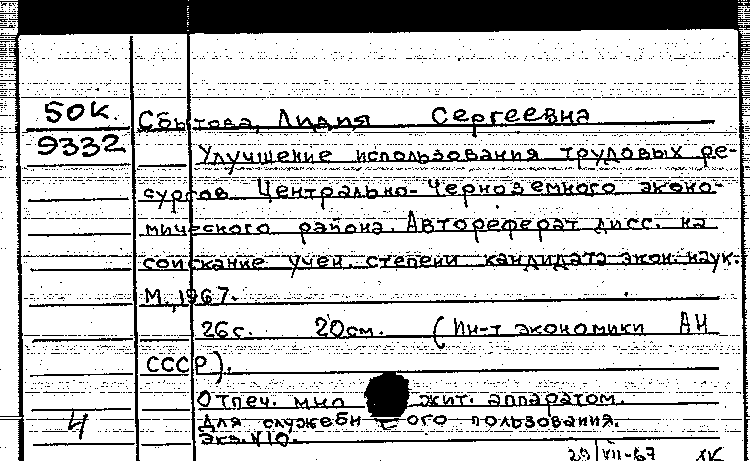 50к.
9332
Сбытова, Лидия Сергеевна
Улучшение использования трудовых ре-
сургов Центрально-Черноземного эконо-
мического района. Автореферат дисс. на
соискание учен. степени кандидата экон. наук.
М., 1967.
26с. 20см. (Ин-т экономики АН
СССР).
Отпеч. мно жит. аппаратом.
Для служебн ого пользования.
Экз. №10.
4
29/VII-67